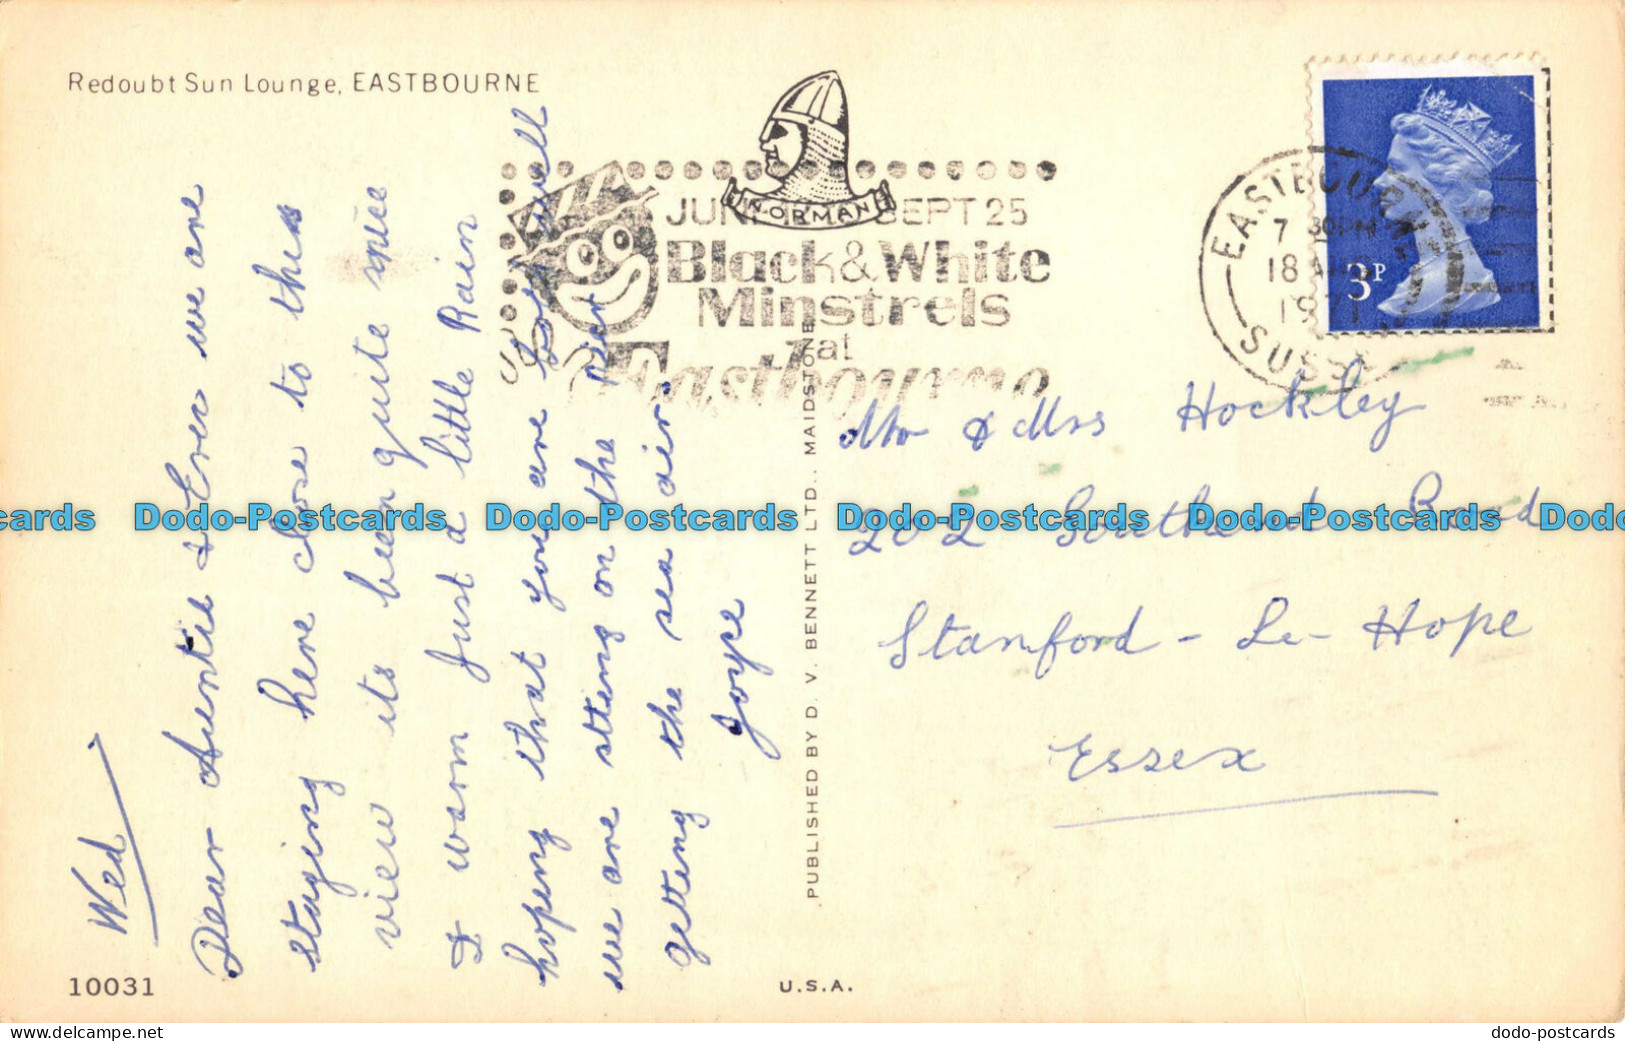 Redoubt Sun Lounge, EASTBOURNE
NORMAN
JUNE SEPT 25
Black & White
Minstrels
at
Eastbourne
EASTBOURNE
7 30PM
18 AUG
1971
SUSSEX
3P
Wed
Dear Auntie & Ern we are
staying here close to this
view its been quite nice
& warm just a little Rain
hoping that you are both well
we are sitting on the pier
getting the sea air.
Joyce
Mr & Mrs Hockley
202 Southend Road
Stanford - Le - Hope
Essex
PUBLISHED BY D. V. BENNETT LTD., MAIDSTONE
10031
U.S.A.
Dodo-Postcards Dodo-Postcards Dodo-Postcards Dodo-Postcards
delcampe.net
dodo-postcards